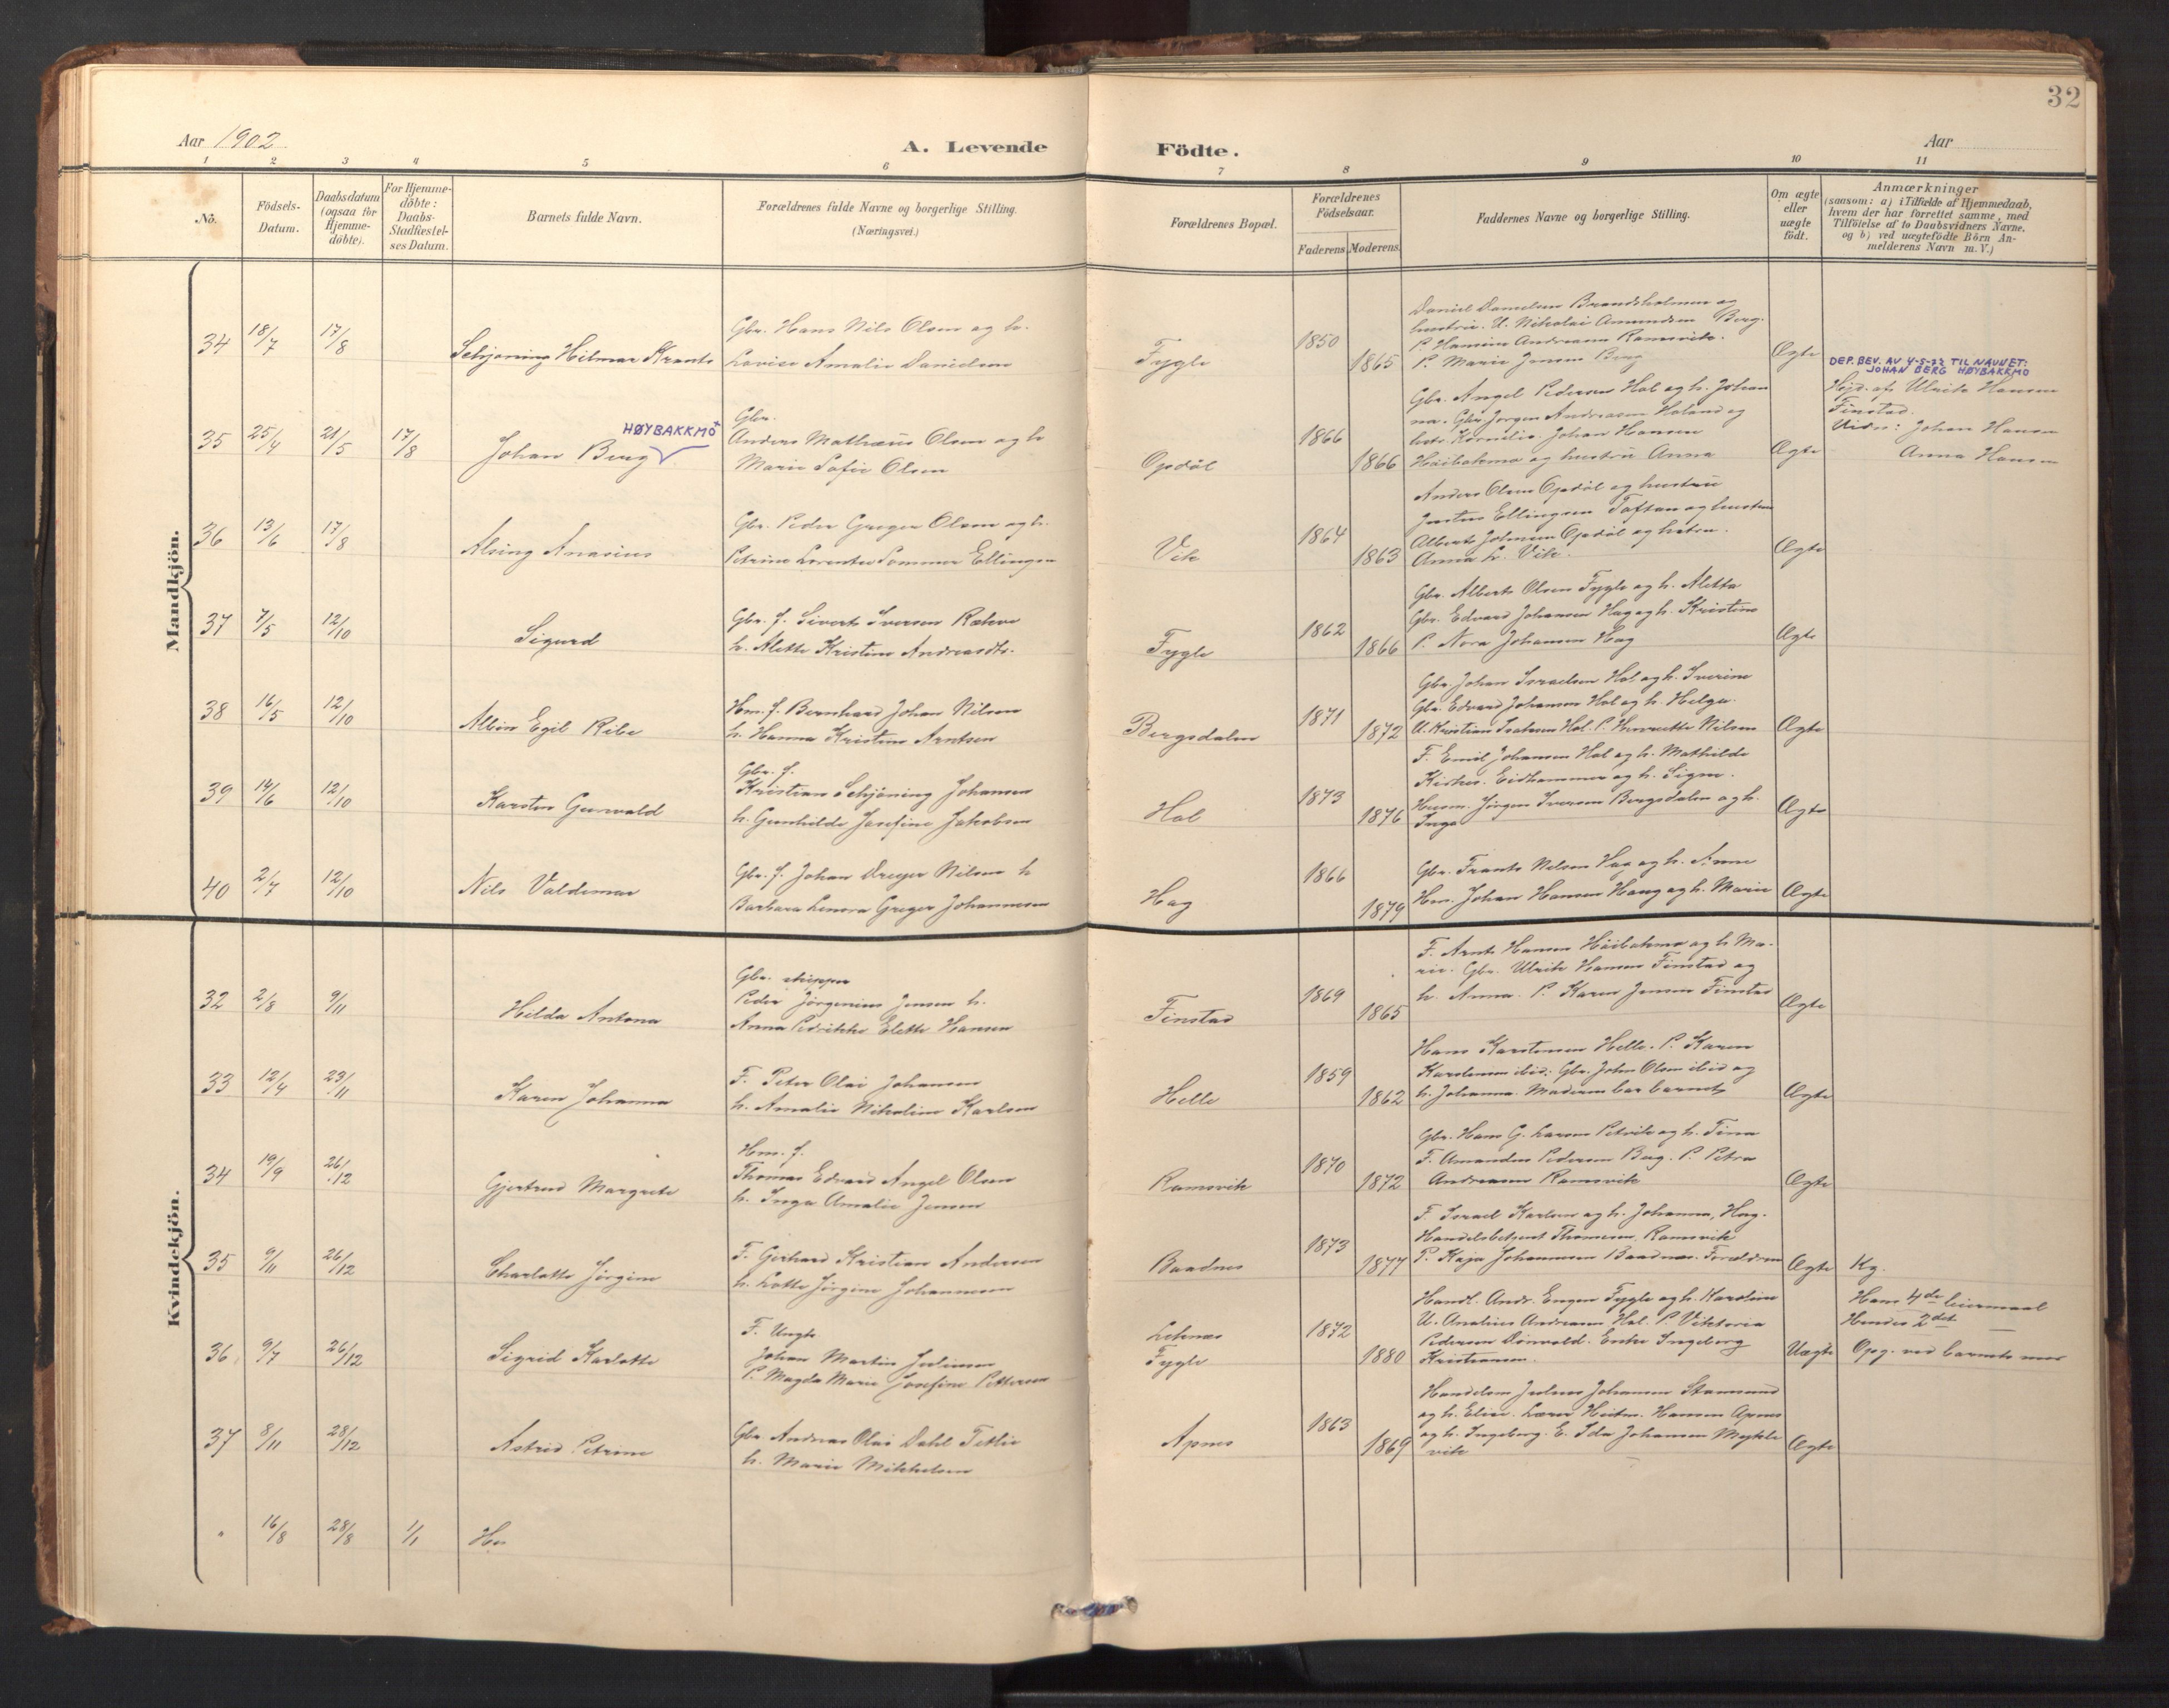 32
Aar 1902
A. Levende
Födte.
Aar
1 2 3 4 5 6 7 8 9 10 11
No.
Födsels-
Datum.
Daabsdatum
(ogsaa for
Hjemme-
döbte).
For Hjemme-
döbte:
Daabs-
Stadfæstel-
ses Datum.
Barnets fulde Navn.
Forældrenes fulde Navne og borgerlige Stilling.
(Næringsvei.)
Forældrenes Bopæl.
Forældrenes
Födselsaar.
Faderens
Moderens.
Faddernes Navne og borgerlige Stilling.
Om ægte
eller
uægte
födt.
Anmærkninger
(saasom: a) i Tilfælde af Hjemmedaab,
hvem der har forrettet samme, med
Tilföielse af to Daabsvidners Navne,
og b) ved uægtefödte Börn An-
melderens Navn m. V.)
Mandkjön.
34 18/7 17/8
Schjöning Hilmar Krants
Gbr. Hans Nils Olsen og h.
Lovise Amalie Danielsen
Fygle
1850
1865
Daniel Danielsen Brandsholmen og
hustrie. U. Nikolai Amundsen Berg.
P. Hansine Andreasen Ramsvik.
P. Marie Jensen Berg
Ægte
35 25/4 21/5 17/8
Johan Berg
HØYBAKKMO
Gbr.
Anders Mathæus Olsen og h
Marie Sofie Olsen
Opdöl
1866
1866
Gbr. Angel Pedersen Hol og h. Johan
na. Gbr Jörgen Andreasen Holand og
hstr Kornelia. Johan Hansen
Höibakmo og hustru Anna
Ægte
DEP. BEV. AV 4-5-23 TIL NAVNET:
JOHAN BERG HØYBAKKMO
Hjd. af Ulrik Hansen
Finstad.
Vidn: Johan Hansen
Anna Hansen
36 13/6 17/8
Alsing Anasius
Gbr. Peder Greger Olsen og h.
Petrine Lorentse Sommer Ellingsen
Vik
1864
1863
Anders Olsen Opdöl og hustrü
Justus Ellingsen Toftan og hustru
Albert Johnsen Opdöl og hstru.
Anna L. Vik.
Ægte
37 7/5 12/10
Sigurd
Gbr. f. Sivert Iversen Rekve
h. Alette Kristine Andreasdtr.
Fygle
1862
1866
Gbr. Albert Olsen Fygle og h. Aletta
Gbr. Edvard Johansen Hag og h. Kristine
P. Nora Johansen Hag
Ægte
38 16/5 12/10
Albin Egil Ribe
Hm. f. Bernhard Johan Nilsen
h. Hanna Kristine Arntsen
Bergsdalen
1871
1872
Gbr. Johan Israelsen Hol og h. Iverine
Gbr. Edvard Johansen Hol og h. Helga.
U. Kristian Isaksen Hol. P. Henriette Nilsen
Ægte
39 14/6 12/10
Karsten Gunvald
Gbr. f.
Kristian Schjöning Johansen
h. Gunhilde Josefine Jakobsen
Hol
1873
1876
F. Emil Johansen Hol og h. Mathilde
Eidhammer og h. Signe.
Husm. Jörgen Iversen Bergsdalen og h.
Inga
Ægte
40 2/7 12/10
Nils Valdemar
Gbr. f. Johan Dreyer Nilsen h
Barbara Lenora Greger Johannesen
Hag
1866
1879
Gbr. Frants Nelsen Hag og h. Anne
Hm. Johan Hansen Haug og h. Marie
Ægte
Kvindekjön.
32 2/8 9/11
Hilda Antona
Gbr. skipper
Peder Jörgenius Jensen h.
Anna Pedrikke Elette Hansen
Finstad
1869
1865
F. Arnt Hansen Höibakmo og h. Ma-
rie. Gbr. Ulrik Hansen Finstad og
h. Anna. P. Karen Jensen Finstad
Ægte
33 12/4 23/11
Karen Johanna
F. Peter Olai Johansen
h. Amalie Nikoline Karlsen
Helle
1859
1862
Hans Karstensen Helle. P. Karen
Karstensen ibid: Gbr. John Olsen ibid og
h. Johanna. Moderen bar barnet
Ægte
34 19/9 26/12
Gjertrud Margrete
Hm. f.
Thomas Edvard Angel Olsen
h. Inga Amalie Jensen
Ramsvik
1870
1872
Gbr. Hans G. Larsen Petvik og h. Tina
F. Amandus Pedersen Berg. P. Petra
Andreasen Ramsvik
Ægte
35 9/11 26/12
Charlotte Jörgine
F. Gerhard Kristian Andersen
h. Lotte Jörgine Johannesen
Baadnes
1873
1877
F. Israel Karlsen og h. Johanna, Hag.
Handelsbetjent Thomesen, Ramsvik
P. Kaja Johannesen Baadnes. Forældrene
Ægte
Kg.
36 9/7 26/12
Sigrid Karlotte
F. Ungk.
Johan Martin Juliusen
P. Magda Marie Josefine Pettersen
Leknes
Fygle
1872
1880
Handl. Andr. Engen Fygle og h. Karoline
U. Analius Andreasen Hol. P. Viktoria
Pedersen Dönvold. Enke Ingeborg
Kristiansen.
Uægte
Hans 4de leiermaal
Hendes 2det
Opg. ved barnets mor
37 8/11 28/12
Astrid Petrine
Gbr Andreas Olai Dahl Tetlie
h. Marie Mikkelsen
Apnes
1863
1869
Handelsm Julius Johansen Stamsund
og h. Elise. Lærer Heitm. Hansen Apnes
og h. Ingeborg. E. Ida Johansen Myklevik
Ægte
" 16/8 28/8 1/1
He